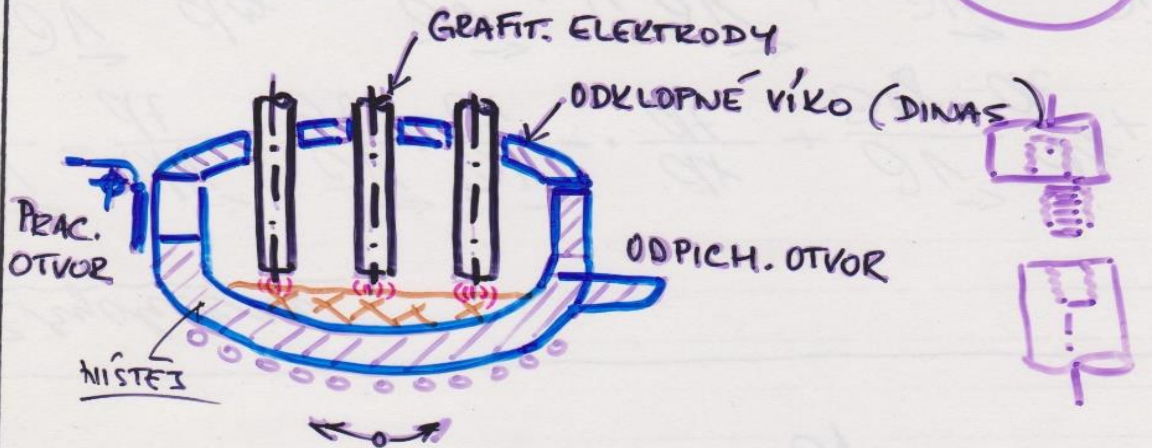 GRAFIT. ELEKTRODY
ODKLOPNÉ VÍKO (DINAS)
PRAC.
OTVOR
ODPICH. OTVOR
NÍSTĚJ